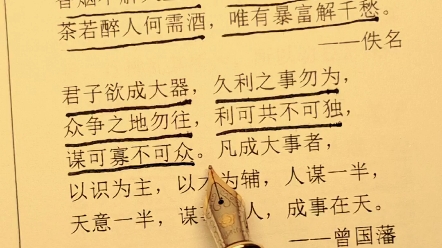 茶若醉人何需酒，唯有暴富解千愁。
——佚名
君子欲成大器，久利之事勿为，
众争之地勿往，利可共不可独，
谋可寡不可众。凡成大事者，
以识为主，以为辅，人谋一半，
天意一半，谋人，成事在天。
——曾国藩